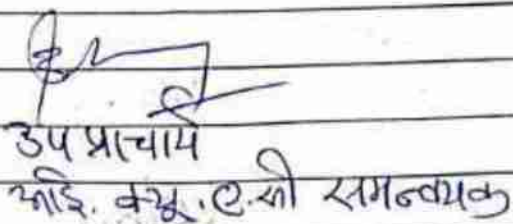 उप प्राचार्य
आई. क्यू. ए. सी समन्वयक